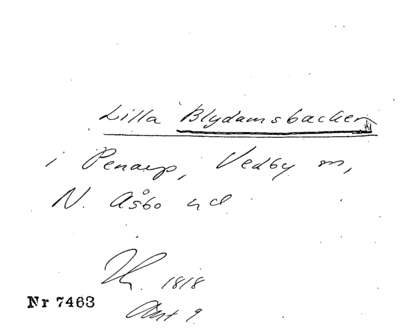 Lilla Blydamsbacken
i Penarp, Vedby sn,
N. Åsbo hd
1818
Akt 9
Nr 7463